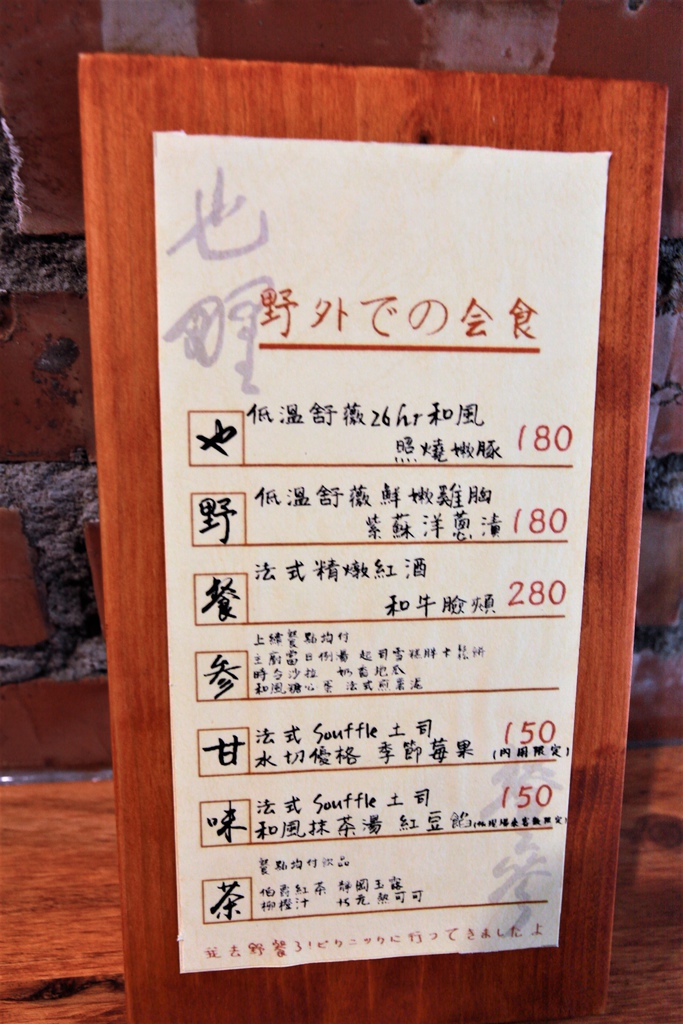 也野
野外での会食
也
低溫舒薇26hr和風
照燒嫩豚 180
野
低溫舒薇鮮嫩雞胸
紫蘇洋蔥漬 180
餐
法式精燉紅酒
和牛臉頰 280
参
上緯餐點均付
主廚當日例湯 起司雪糕胖卡鬆餅
時令沙拉 奶香地瓜
和風糖心蛋 法式煎薯泥
甘
法式Souffle土司 150
水切優格 季節莓果 (內用限定)
味
法式Souffle土司 150
和風抹茶湯 紅豆餡
茶
餐點均付飲品
伯爵紅茶 靜岡玉露
柳橙汁 75% 熱可可
走去野餐了!ピクニックに行ってきましたよ